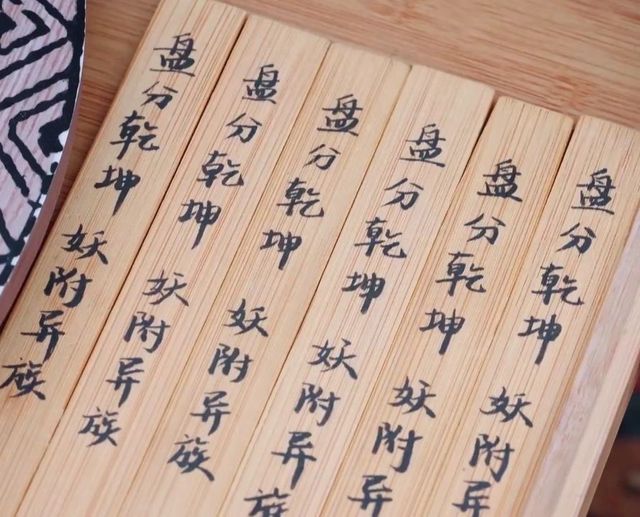 盘分乾坤 妖附异族
盘分乾坤 妖附异族
盘分乾坤 妖附异族
盘分乾坤 妖附异族
盘分乾坤 妖附异
盘分乾坤 妖附异